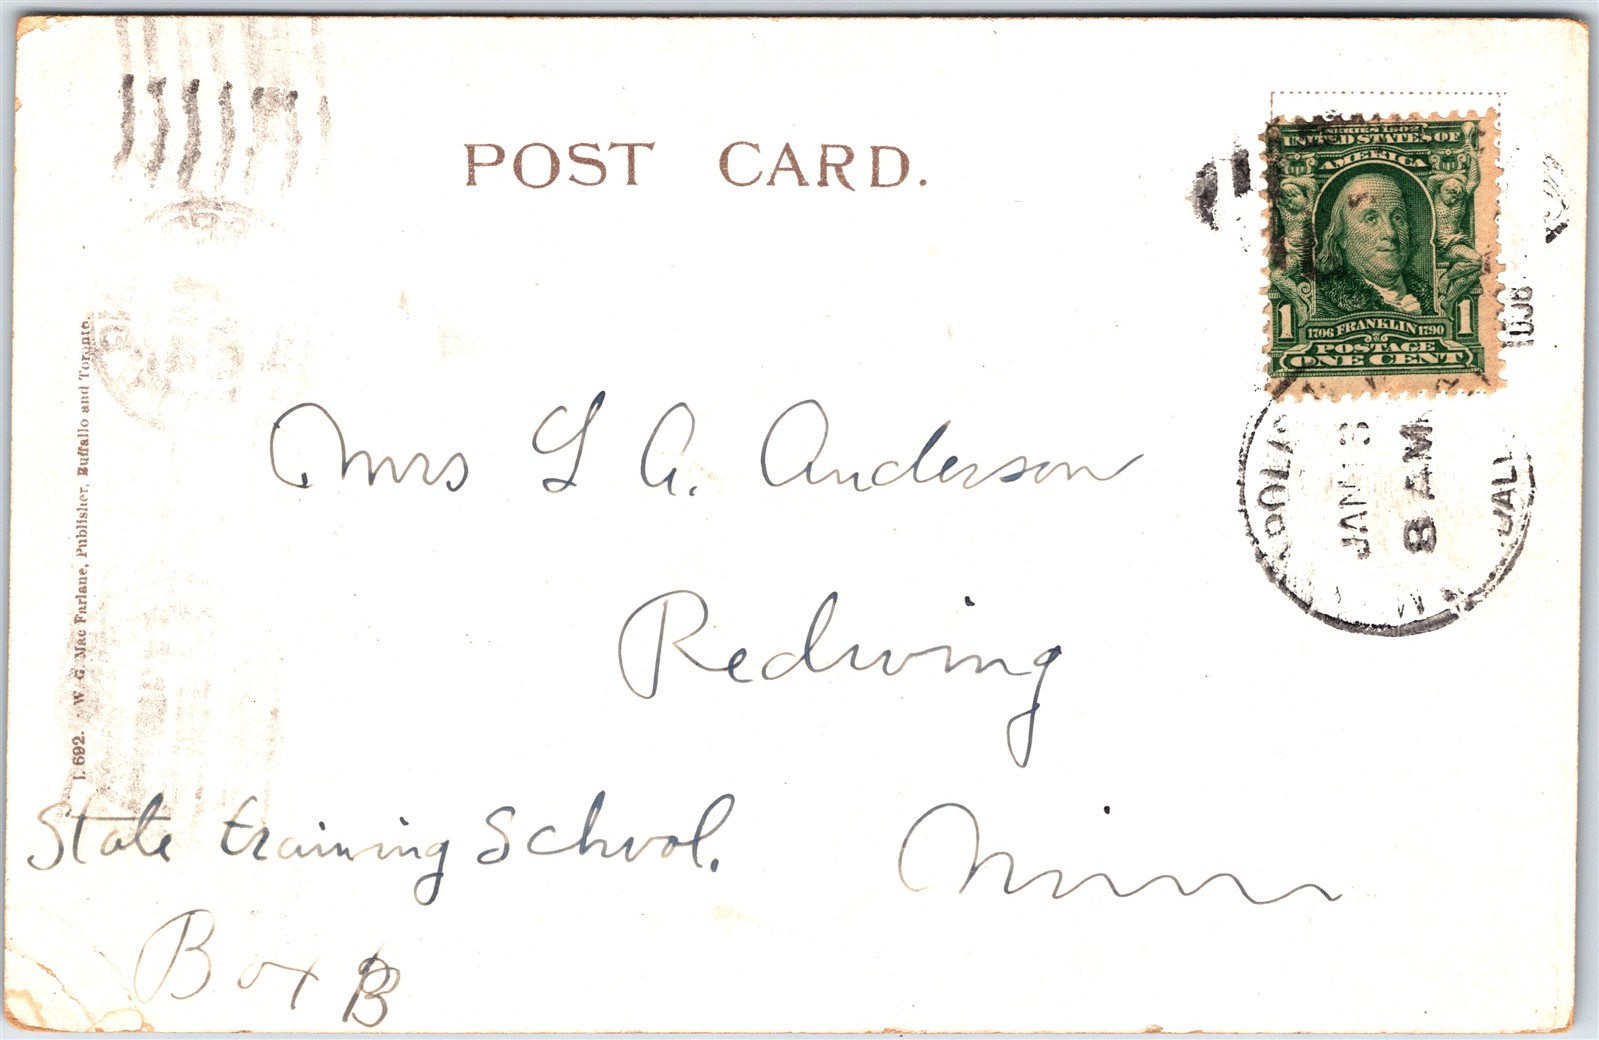 POST CARD.
SERIES 1902
UNITED STATES OF
AMERICA
1 1706 FRANKLIN 1790 1
POSTAGE
ONE CENT
JAN
8 AM
Mrs L A. Anderson
Redwing
Minn
State training School.
Box B
I. 692. W. G. Mac Farlane, Publisher, Buffalo and Toronto.